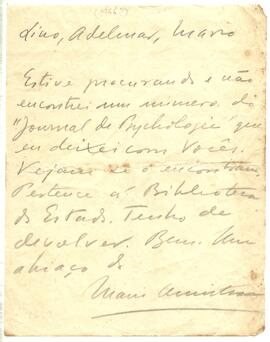 Lino, Adelmar, Mario
Estive procurando e não
encontrei um numero do
"Journal de Psychologie" que
eu deixei com vocês.
Vejam se o encontram.
Pertence á Biblioteca
do Estado. Tenho de
devolver. Bem. Um
abraço do